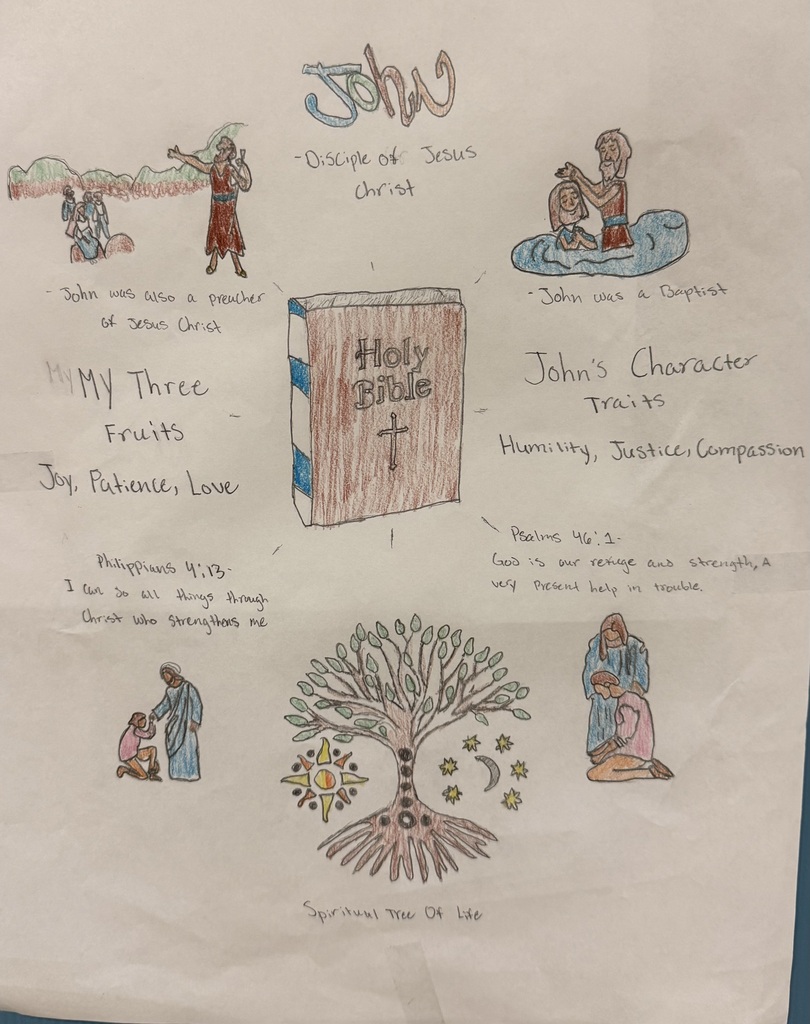 John
-Disciple of Jesus
Christ
-John was also a preacher
of Jesus Christ
-John was a Baptist
Holy
Bible
My My Three
Fruits
Joy, Patience, Love
John's Character
Traits
Humility, Justice, Compassion
Philippians 4:13-
I can do all things through
Christ who strengthens me
Psalms 46:1-
God is our refuge and strength, A
very Present help in trouble.
Spiritual Tree Of Life